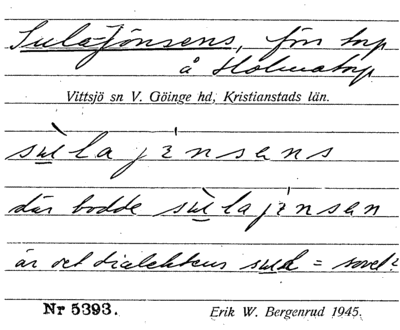 Sula-Jönsens, förr torp
å Holmatorp
Vittsjö sn V. Göinge hd, Kristianstads län.
sula jènsens
där bodde sula jènsen
är det dialektens = sovel?
Nr 5393. Erik W. Bergenrud 1945.